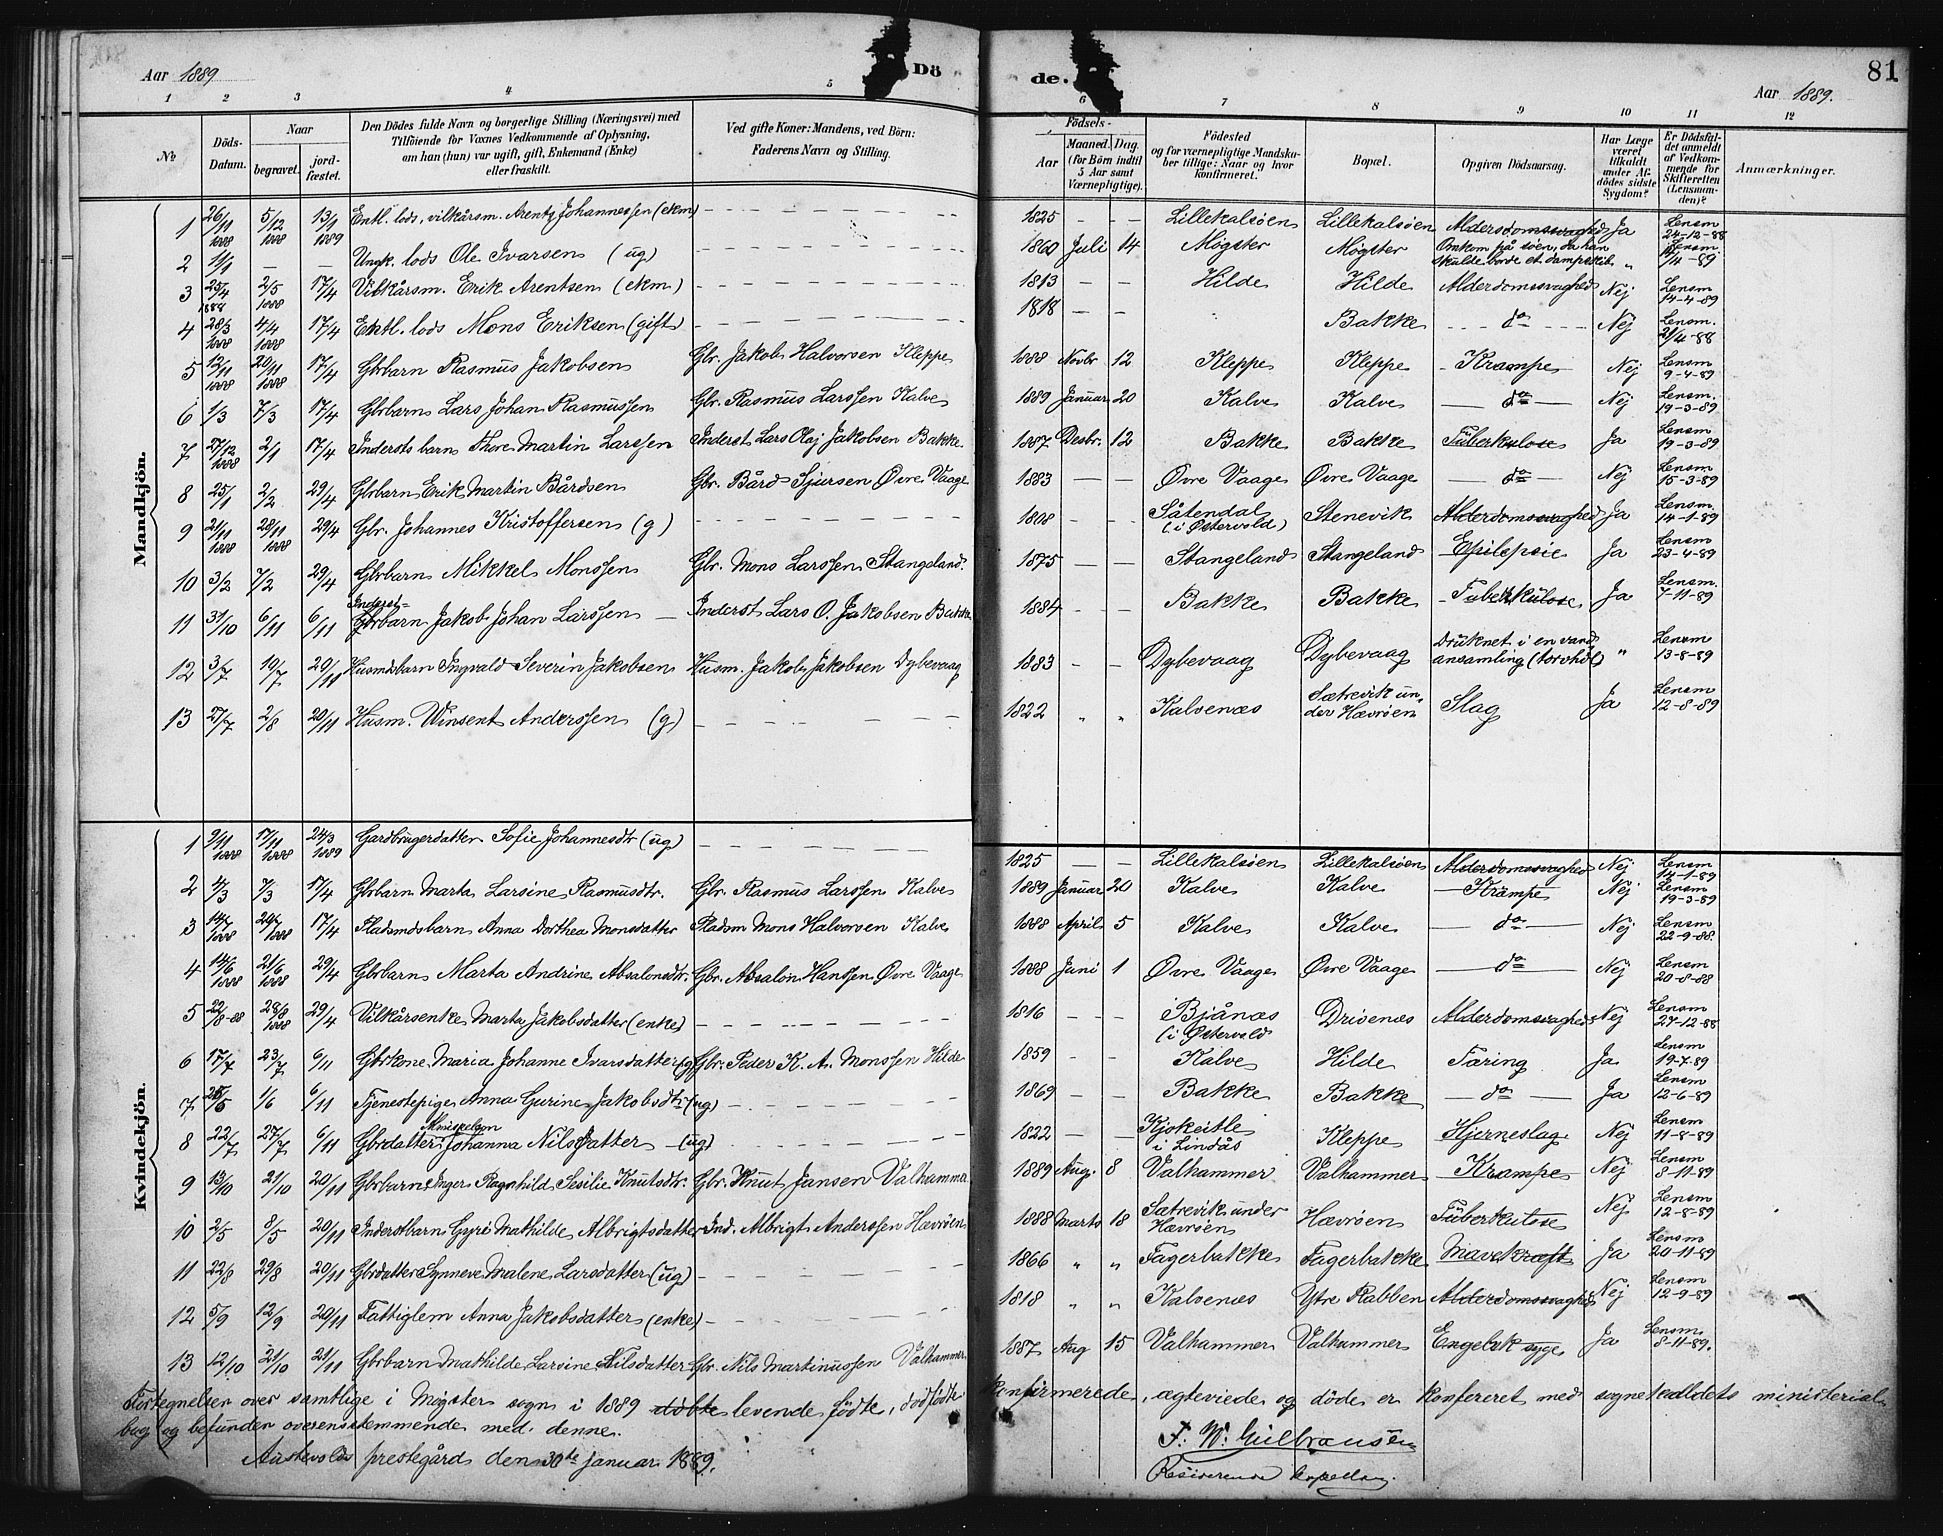 Aar 1889 Dö de. Aar 1889. 81
1 2 3 4 5 6 7 8 9 10 11 12
№ Döds-Datum. Naar begravet. jordfæstet. Den Dödes fulde Navn og borgerlige Stilling (Næringsvei) med Tilföiende for Voxnes Vedkommende af Oplysning, om han (hun) var ugift, gift, Enkemand (Enke) eller fraskilt. Ved gifte Koner: Mandens, ved Börn: Faderens Navn og Stilling. Födsels- Aar Maaned. Dag. (for Börn indtil 5 Aar samt Værnepligtige). Födested og for værnepligtige Mandskaber tillige: Naar og hvor konfirmeret. Bopæl. Opgiven Dödsaarsag. Har Læge været tilkaldt under Afdödes sidste Sygdom? Er Dödsfaldet anmeldt af Vedkommende for Skifteretten (Lensmanden)? Anmærkninger.
Mandkjön.
1 26/11 1888 5/12 1888 13/1 1889 Entl. lods, vilkårsm. Arentz Johannessen (ekm) 1825 Lillekalsöen Lillekalsöen Alderdomssvaghed Ja Lensm 24-12-88
2 11/1 — — Ungk. lods Ole Ivarsen (ug) 1860 Juli 14 Mögster Mögster Omkom på söen, da han skulde borde et dampskib " Lensm. 1/4-89
3 25/4 1888 2/5 1888 17/4 Vilkårsm. Erik Arentsen (ekm) 1813 — — Hilde Hilde Alderdomssvaghed Nej Lensm 14-4-89
4 28/3 1888 4/4 1888 17/4 Entl. lods Mons Eriksen (gift) 1818 — — Bakke do Nej Lensm. 21/4-88
5 12/11 1888 20/11 1888 17/4 Gbrbarn Rasmus Jakobsen Gbr. Jakob Halvorsen Kleppe 1888 Novbr 12 Kleppe Kleppe Krampe Nej Lensm 9-4-89
6 1/3 7/3 17/4 Gbrbarn Lars Johan Rasmussen Gbr. Rasmus Larssen Kalve 1889 Januar 20 Kalve Kalve do Nej Lensm. 19-3-89
7 27/12 1888 2/1 17/4 Inderstsbarn Thore Martin Larssen Inderst Lars Olaj Jakobsen Bakke 1887 Desbr. 12 Bakke Bakke Tüberkulose Ja Lensm 19-3-89
8 25/1 2/2 29/4 Gbrbarn Erik Martin Bårdsen Gbr. Bård Sjursen Övre Vaage 1883 — — Övre Vaage Övre Vaage do Nej Lensm 15-3-89
9 21/11 1888 28/11 1888 29/4 Gbr. Johannes Kristoffersen (g) 1808 Såtendal (i Östervold) Stenevik Alderdomssvaghed Ja Lensm. 14-1-89
10 3/2 7/2 29/4 Gbrbarn Mikkel Monssen Gbr. Mons Larssen Stangeland. 1875 — — Stangeland Stangeland Epilepsie Ja Lensm 23-4-89
11 31/10 6/11 6/11 Inderst- Gbrbarn Jakob Johan Larssen Inderst Lars O. Jakobsen Bakke 1884 Bakke Bakke Tuberkulose Ja Lensm. 7-11-89
12 3/7 10/7 20/11 Husmdsbarn Ingvald Severin Jakobsen Husm. Jakob Jakobsen Dybevaag 1883 Dybevaag Dybevaag Druknet i en vandansamling (torvhöl) " Lensm 13-8-89
13 27/7 2/8 20/11 Husm. Winsent Anderssen (g) 1822 " " Kalvenæs Sætrevik under Hævröen Slag Ja Lensm 12-8-89
Kvindekjön.
1 9/11 1888 17/11 1888 24/3 1889 Gardbrugerdatter Sofie Johannesdtr (ug) 1825 — — Lillekalsöen Lillekalsöen Alderdomssvaghed Nej Lensm 14-1-89
2 4/3 7/3 17/4 Gbrbarn Marta Larsine Rasmusdtr. Gbr. Rasmus Larssen Kalve 1889 Januar 20 Kalve Kalve Krampe Nej Lensm 19-3-89
3 14/7 1888 29/7 1888 17/4 Pladsmdsbarn Anna Dorthea Monsdatter Pladsm Mons Halvorsen Kalve 1888 April 5 Kalve Kalve do Nej Lensm 22-9-88
4 14/6 1888 21/6 1888 29/4 Gbrbarn Marta Andrine Absalonsdtr. Gbr. Absalon Hanssen Övre Vaage 1888 Juni 1 Övre Vaage Övre Vaage do Nej Lensm 20-8-88
5 22/8-88 28/8 1888 29/4 Vilkårsenke Marta Jakobsdatter (enke) 1816 Bjånæs (i Östervold) Drivenæs Alderdomssvaghed Nej Lensm 27-12-88
6 17/7 23/7 6/11 Gbrkone Maria Johanne Ivarsdatter (g) Gbr. Peder K. A. Monssen Hilde 1859 Kalve Hilde Tæring Ja Lensm 19-7-89
7 25/5 1/6 6/11 Tjenestepige Anna Gurine Jakobsdtr (ug) 1869 Bakke Bakke do Ja Lensm 12-6-89
8 22/7 27/7 6/11 Gbrdatter Johanna Nilsdatter (ug) 1822 — — i Lindås Kleppe Hjerneslag Nej Lensm 11-8-89
9 13/10 21/10 20/11 Gbrbarn Inger Ragnhild Sesilie Knutsdtr. Gbr. Knut Jansen Valhammer 1889 Aug. 8 Valhammer Valhammer Krampe Nej Lensm 8-11-89
10 2/5 8/5 20/11 Inderstbarn Gyri Mathilde Albrigtsdatter Ind. Albrigt Anderssen Hævröen 1888 Marts 18 Sætrevik under Hævröen Hævröen Tüberkulose Nej Lensm 12-8-89
11 22/8 29/8 20/11 Gbrdatter Synneva Malene Larsdatter (ug) 1866 " " Fagerbakke Fagerbakke Mavekræft Ja Lensm 20-11-89
12 5/9 12/9 20/11 Fattiglem Anna Jakobsdatter (enke) 1818 " " Kalvenæs Ytre Rabben Alderdomssvaghed Nej Lensm 12-9-89
13 12/10 21/10 21/11 Gbrbarn Mathilde Larsine Nilsdatter Gbr. Nils Martinussen Valhammer 1887 Aug 15 Valhammer Valhammer Engelsk syge Ja Lensm. 8-11-89.
Fortegnelsen over samtlige i Mögster sogn i 1889 döbte levende fødte, dødfødte konfirmerede, ægteviede og døde er konfereret med sognekaldets ministerial
bog og befunden overensstemmende med denne.
Austevolds prestegård den 30te januar 1889.
F. W. Gulbransen
Residerende kapellan.